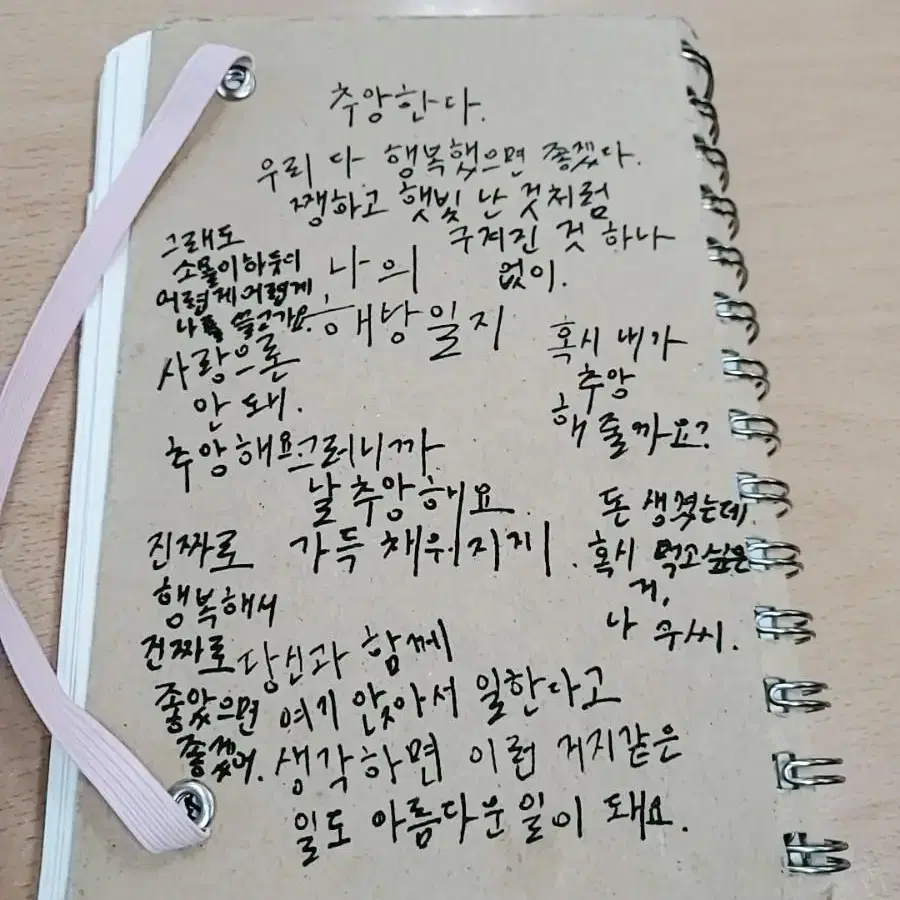 추앙한다.
우리 다 행복했으면 좋겠다.
쨍하고 햇빛 난 것처럼
구겨진 것 하나
없이.
그래도
소몰이하듯이
어렵게 어렵게
나를 끌고가요.
나의
해방일지
사랑으론
안 돼.
추앙해요
혹시 내가
추앙
해 줄까요?
그러니까
날 추앙해요
가득 채워지게.
돈 생겼는데
혹시 먹고싶은
거,
나 구씨.
진짜로
행복해서
진짜로
좋았으면
좋겠어.
당신과 함께
여기 앉아서 일한다고
생각하면 이런 거지같은
일도 아름다운 일이 돼요.